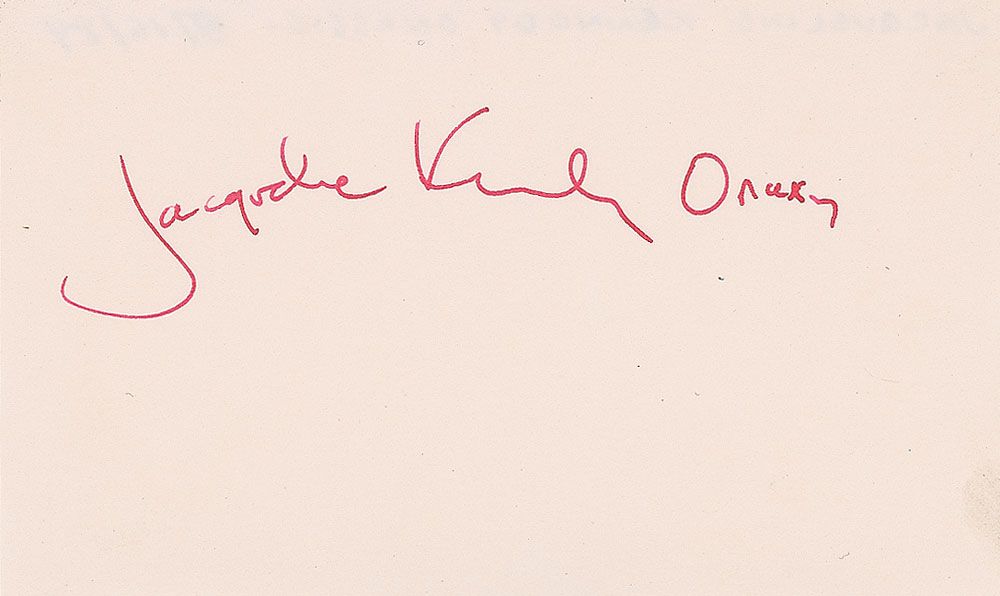 Jacqueline Kennedy Onassis